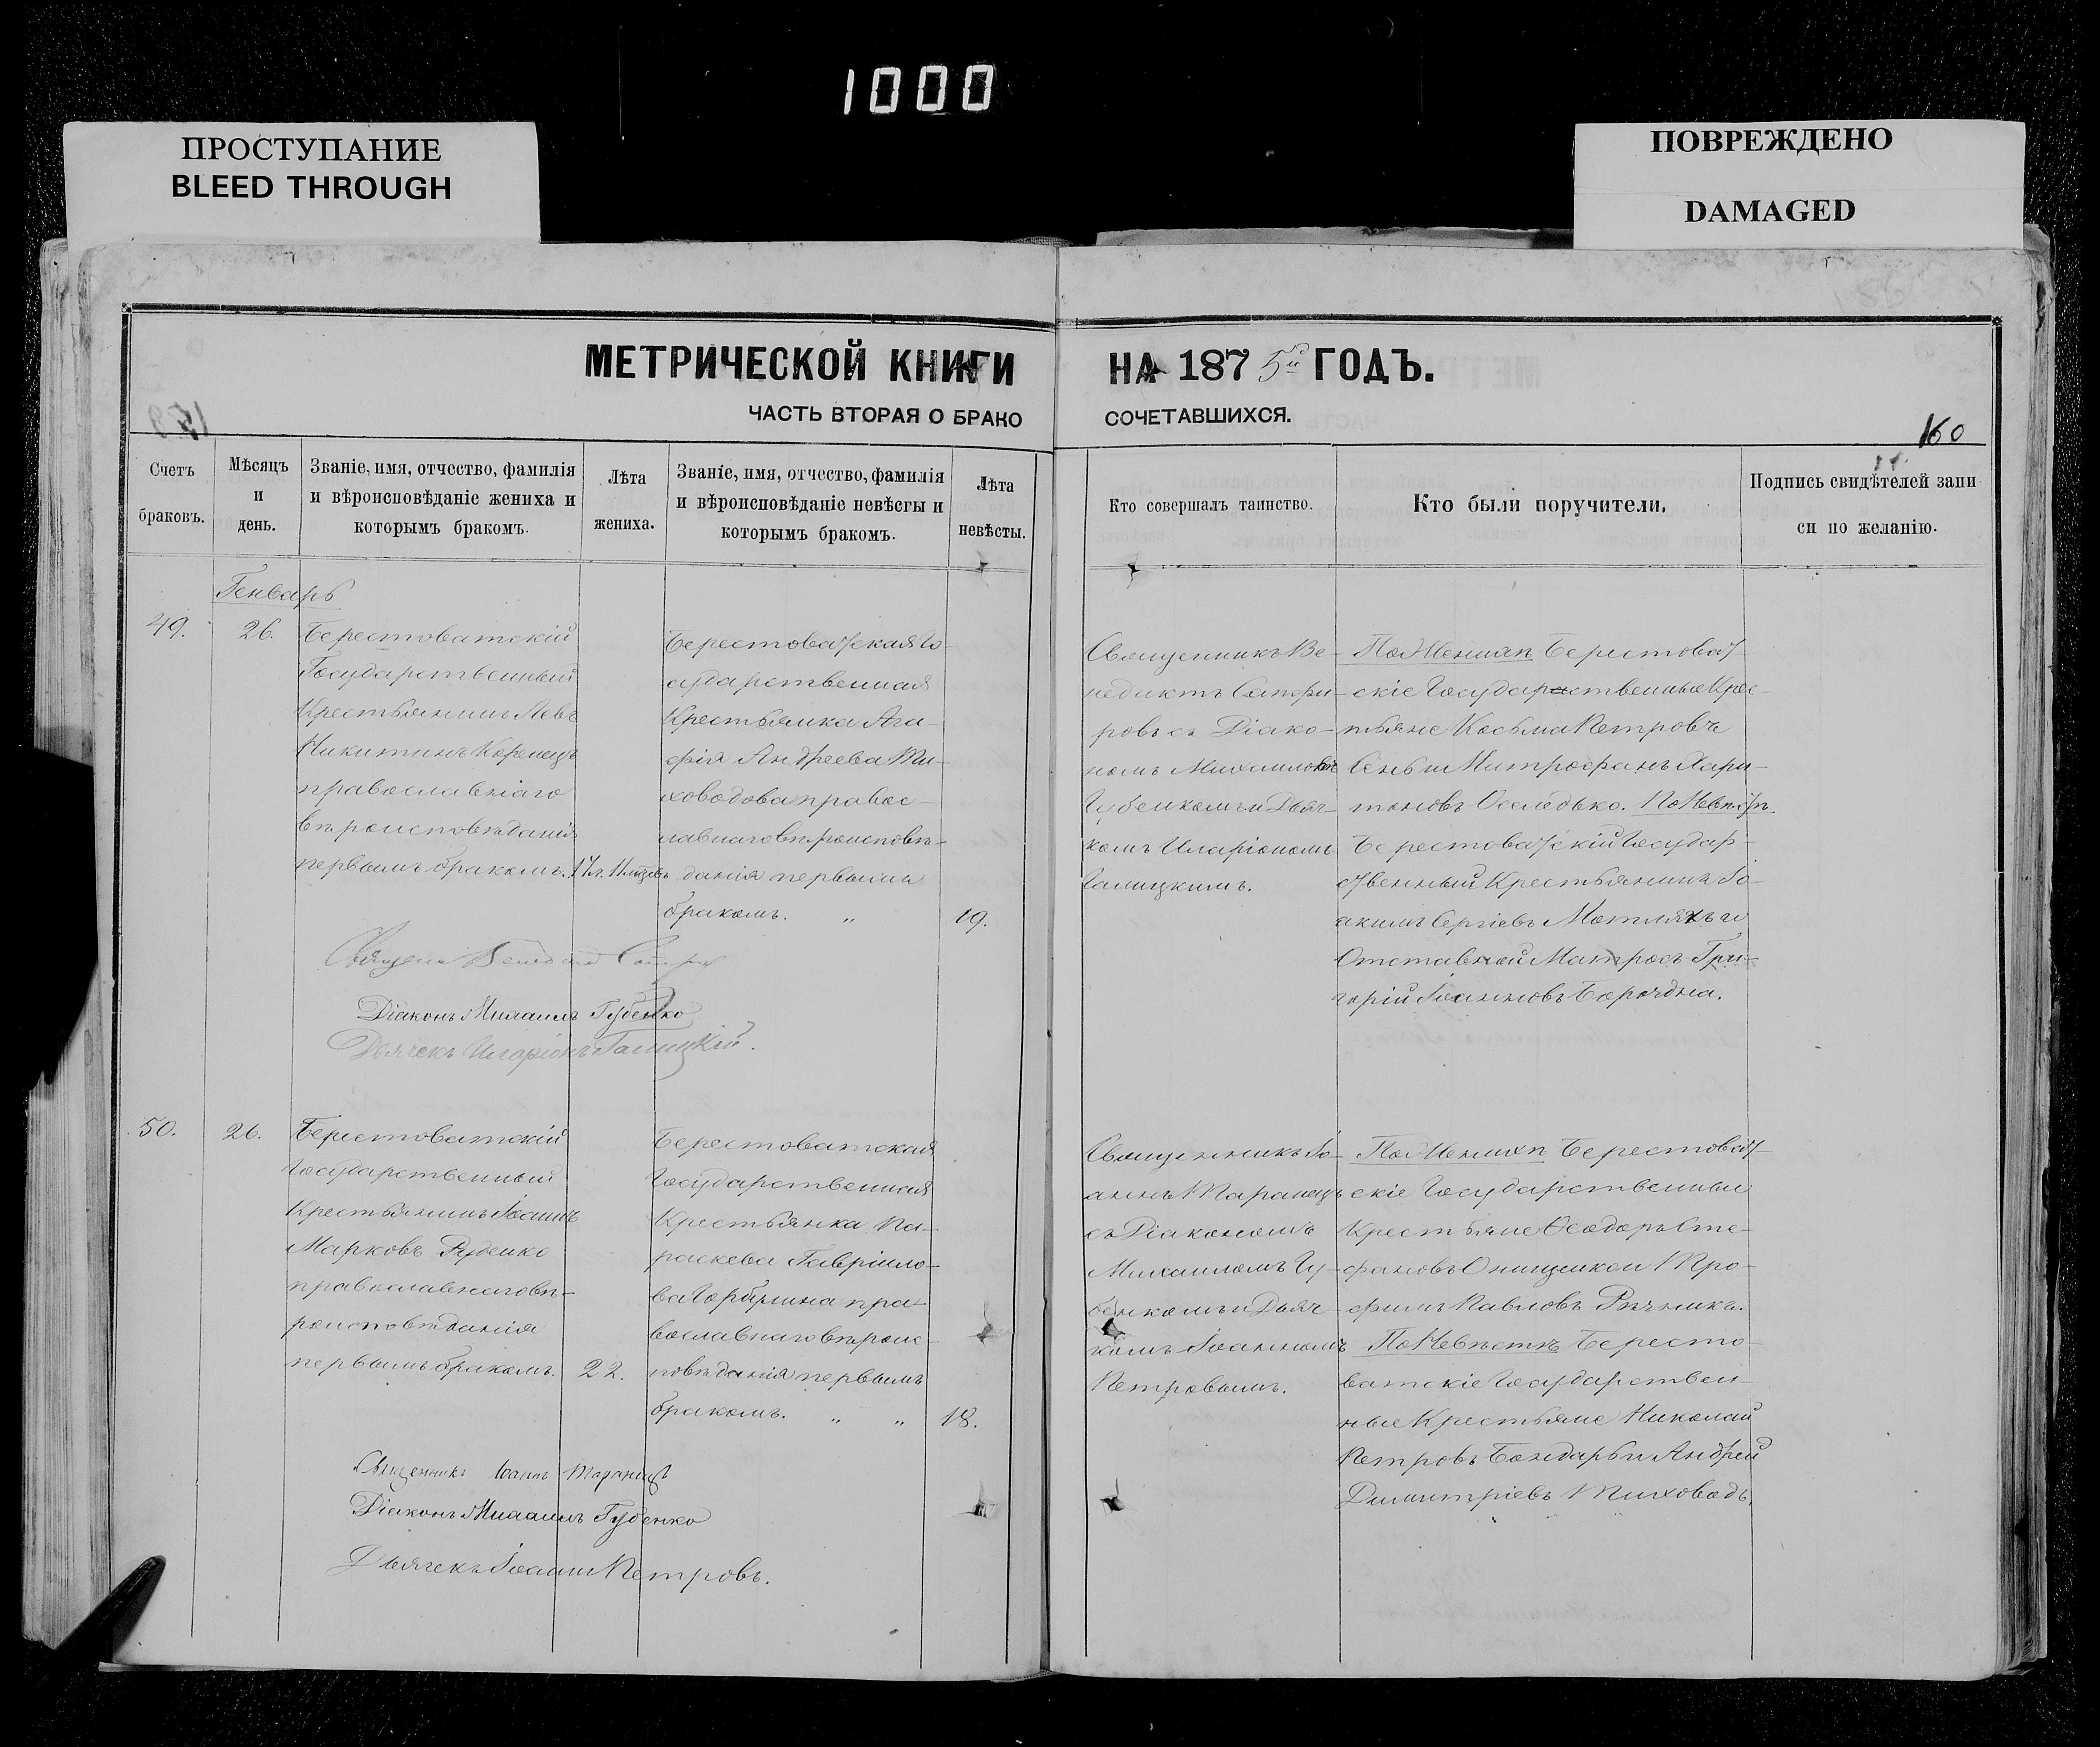 1000
ПРОСТУПАНИЕ
BLEED THROUGH
ПОВРЕЖДЕНО
DAMAGED
МЕТРИЧЕСКОЙ КНИГИ
НА 1875й ГОДЪ.
ЧАСТЬ ВТОРАЯ О БРАКО
СОЧЕТАВШИХСЯ.
160
Счетъ
браковъ.
Мѣсяцъ
и
день.
Званіе, имя, отчество, фамилія
и вѣроисповѣданіе жениха и
которымъ бракомъ.
Лѣта
жениха.
Званіе, имя, отчество, фамилія
и вѣроисповѣданіе невѣсты и
которымъ бракомъ.
Лѣта
невѣсты.
Кто совершалъ таинство.
Кто были поручители.
Подпись свидѣтелей запи
си по желанію.
Генварь
49.
26.
Берестоватскій
Государственный
Крестьянинъ Левъ
Никитинъ
православнаго
вѣроисповѣданія
первымъ бракомъ.
17 л. 11 мѣсяц.
Берестоватская Го-
сударственная
Крестьянка Ага-
фія Андреева Ти-
ховодова правос-
лавнаго вѣроисповѣ-
данія первымъ
бракомъ. "
19.
Священникъ Ве-
недиктъ Сапфи-
ровъ съ Діако-
номъ Михаиломъ
Губенкомъ и Дьяч-
комъ Иларіономъ
Галицкимъ.
По Женихѣ Берестоват-
скіе Государственные Крес-
тьяне Косьма Петровъ
Сень и Митрофанъ Хари-
тоновъ Оселедько. По Невѣстѣ
Берестоватскій Государ-
ственный Крестьянинъ Іо-
акимъ Сергіевъ Мотляхъ и
Отставной Матросъ Гри-
горій Іоанновъ Бородна.
Діаконъ Михаилъ Губенко
Дьячекъ Иларіонъ Галицкій.
50.
26.
Берестоватскій
Государственный
Крестьянинъ Іоаннъ
Марковъ Руденко
православнаго вѣ-
роисповѣданія
первымъ бракомъ.
22.
Берестоватская
Государственная
Крестьянка Па-
раскева Гавріило-
ва пра-
вославнаго вѣроис-
повѣданія первымъ
бракомъ. " "
18.
Священникъ Іо-
аннъ Таранецъ
съ Діакономъ
Михаиломъ Гу-
бенкомъ и Дьяч-
комъ Іоанномъ
Петровымъ.
По Женихѣ Берестоват-
скіе Государственные
Крестьяне Ѳеодоръ Сте-
фановъ Онищенко и Тро-
фимъ Павловъ Рѣчникъ.
По Невѣстѣ Бересто-
ватскіе Государствен-
ные Крестьяне Николай
Петровъ Бондарь и Андрей
Димитріевъ Тиховодъ.
Священникъ Іоаннъ Таранецъ
Діаконъ Михаилъ Губенко
Дьячекъ Іоаннъ Петровъ.